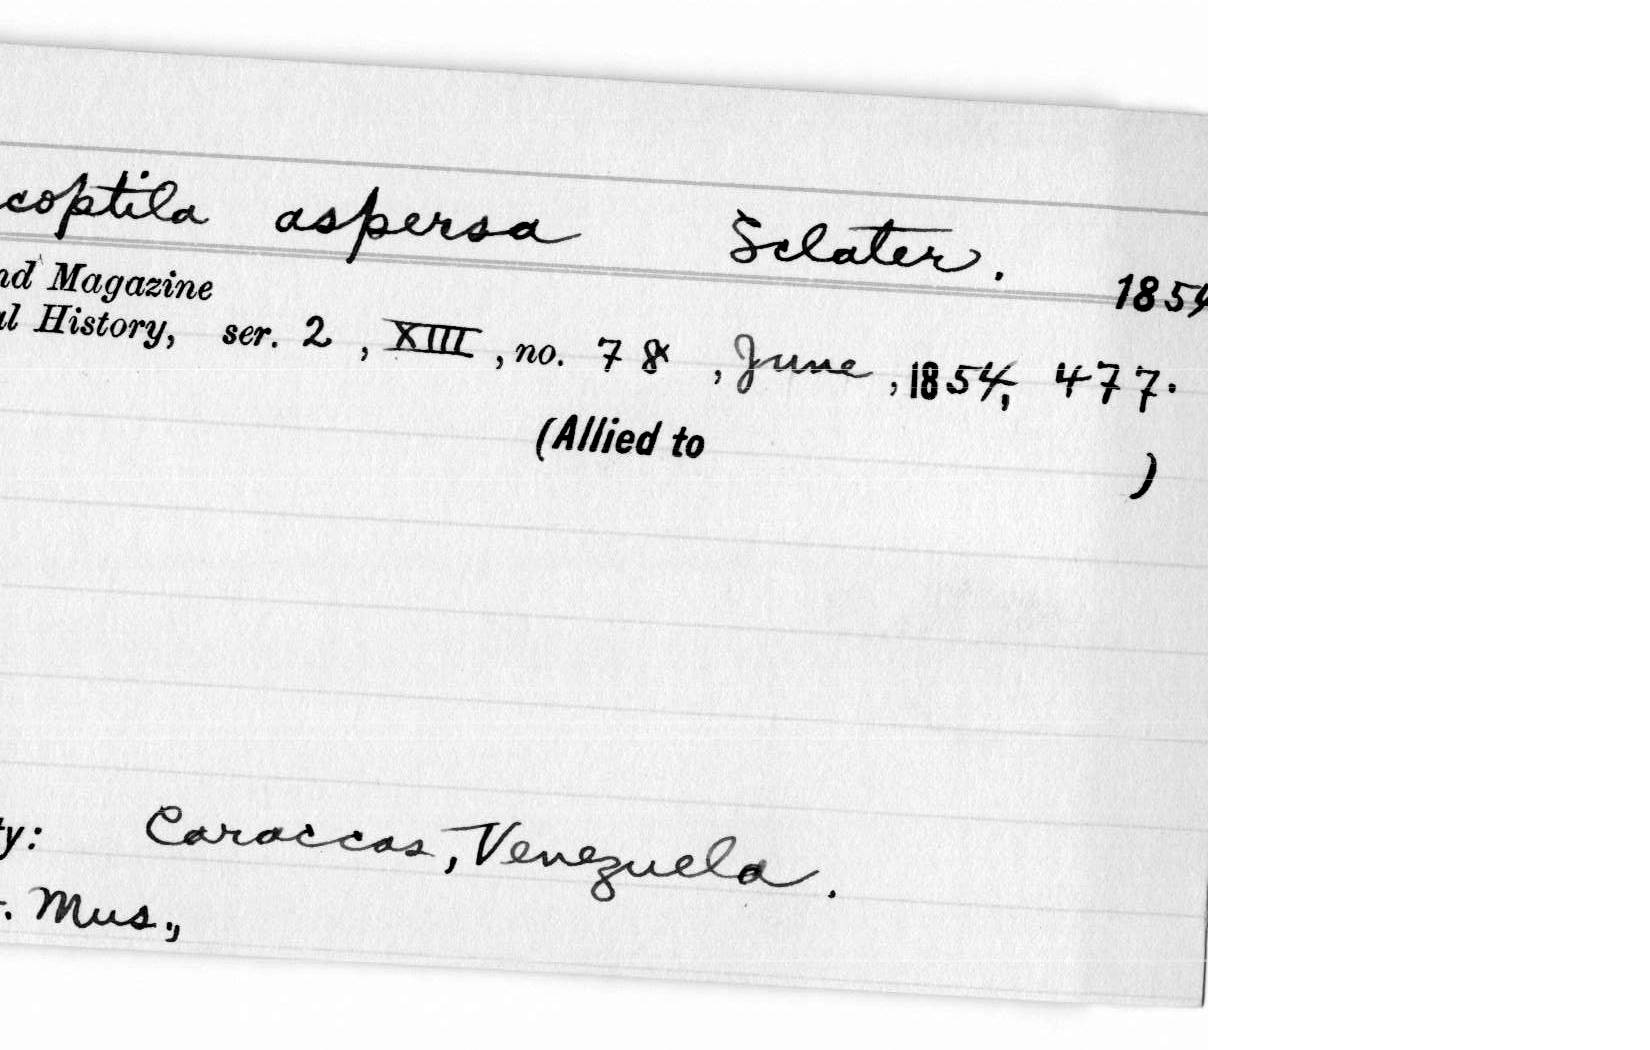 coptila aspersa Sclater. 1854
nd Magazine
al History, ser. 2, XIII, no. 78, June, 1854, 477.
(Allied to )
ty: Caraccas, Venezuela.
. Mus.,